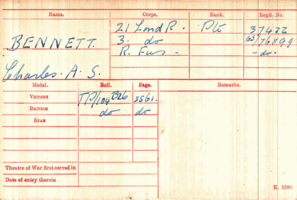 Name. Corps. Rank. Regtl. No.
BENNETT. 21 Lond R. Pte 37422
3. do
R. Fus. - do -
Charles. A. S.
Medal. Roll. Page. Remarks.
Victory
British do do
Star
Theatre of War first served in
Date of entry therein